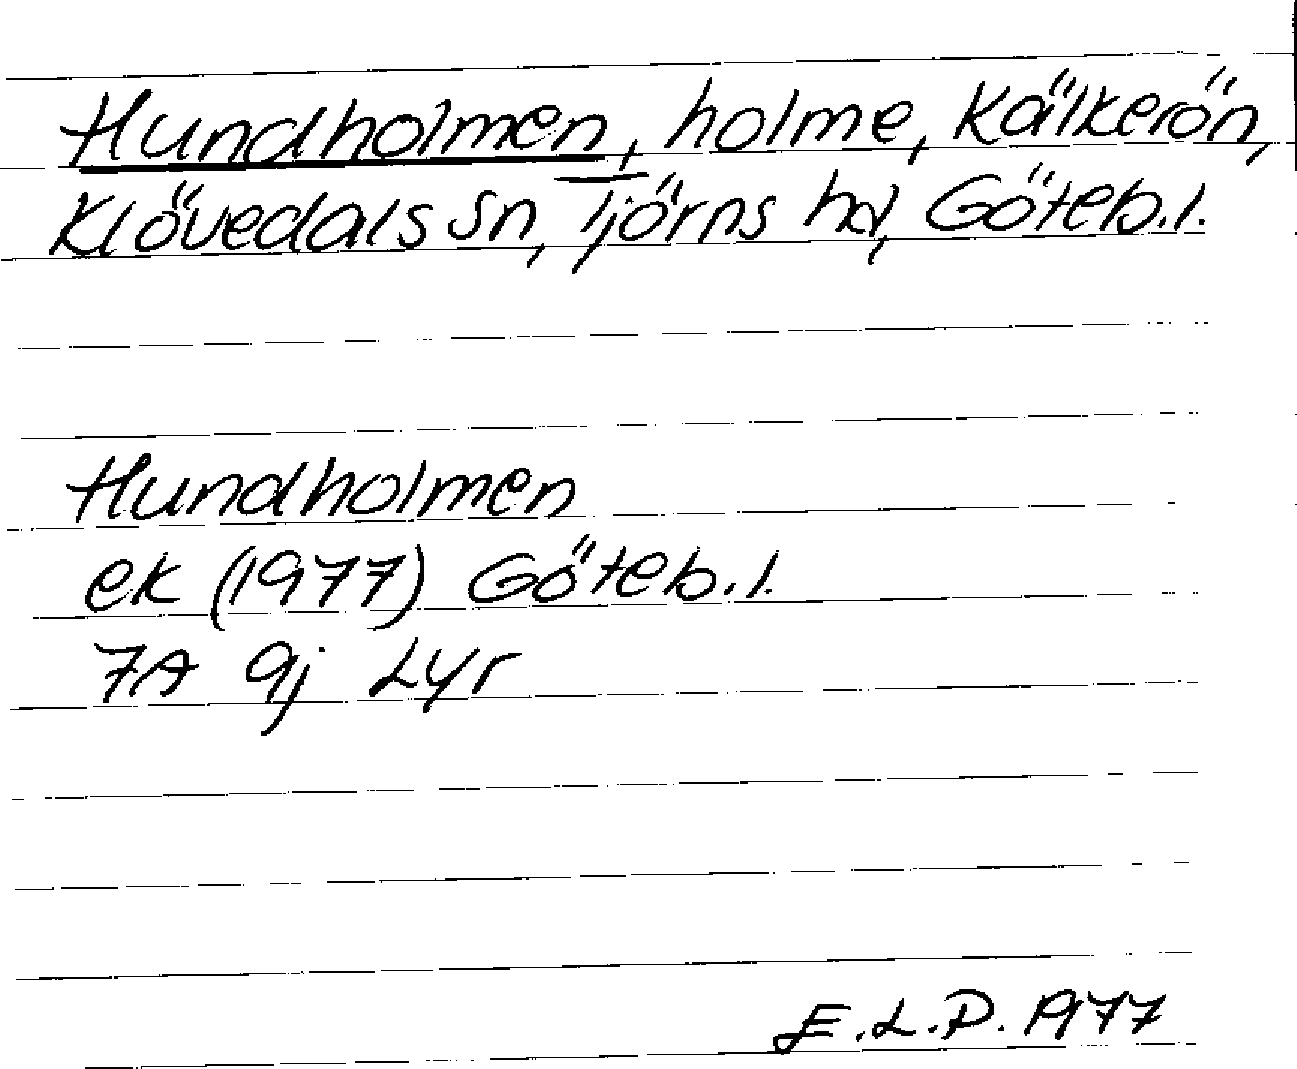 Hundholmen, holme, Kälkerön,
Klövedals sn, Tjörns hd, Göteb.l.
Hundholmen
ek (1977) Göteb.l.
7A 9j Lyr
E.L.P. 1977